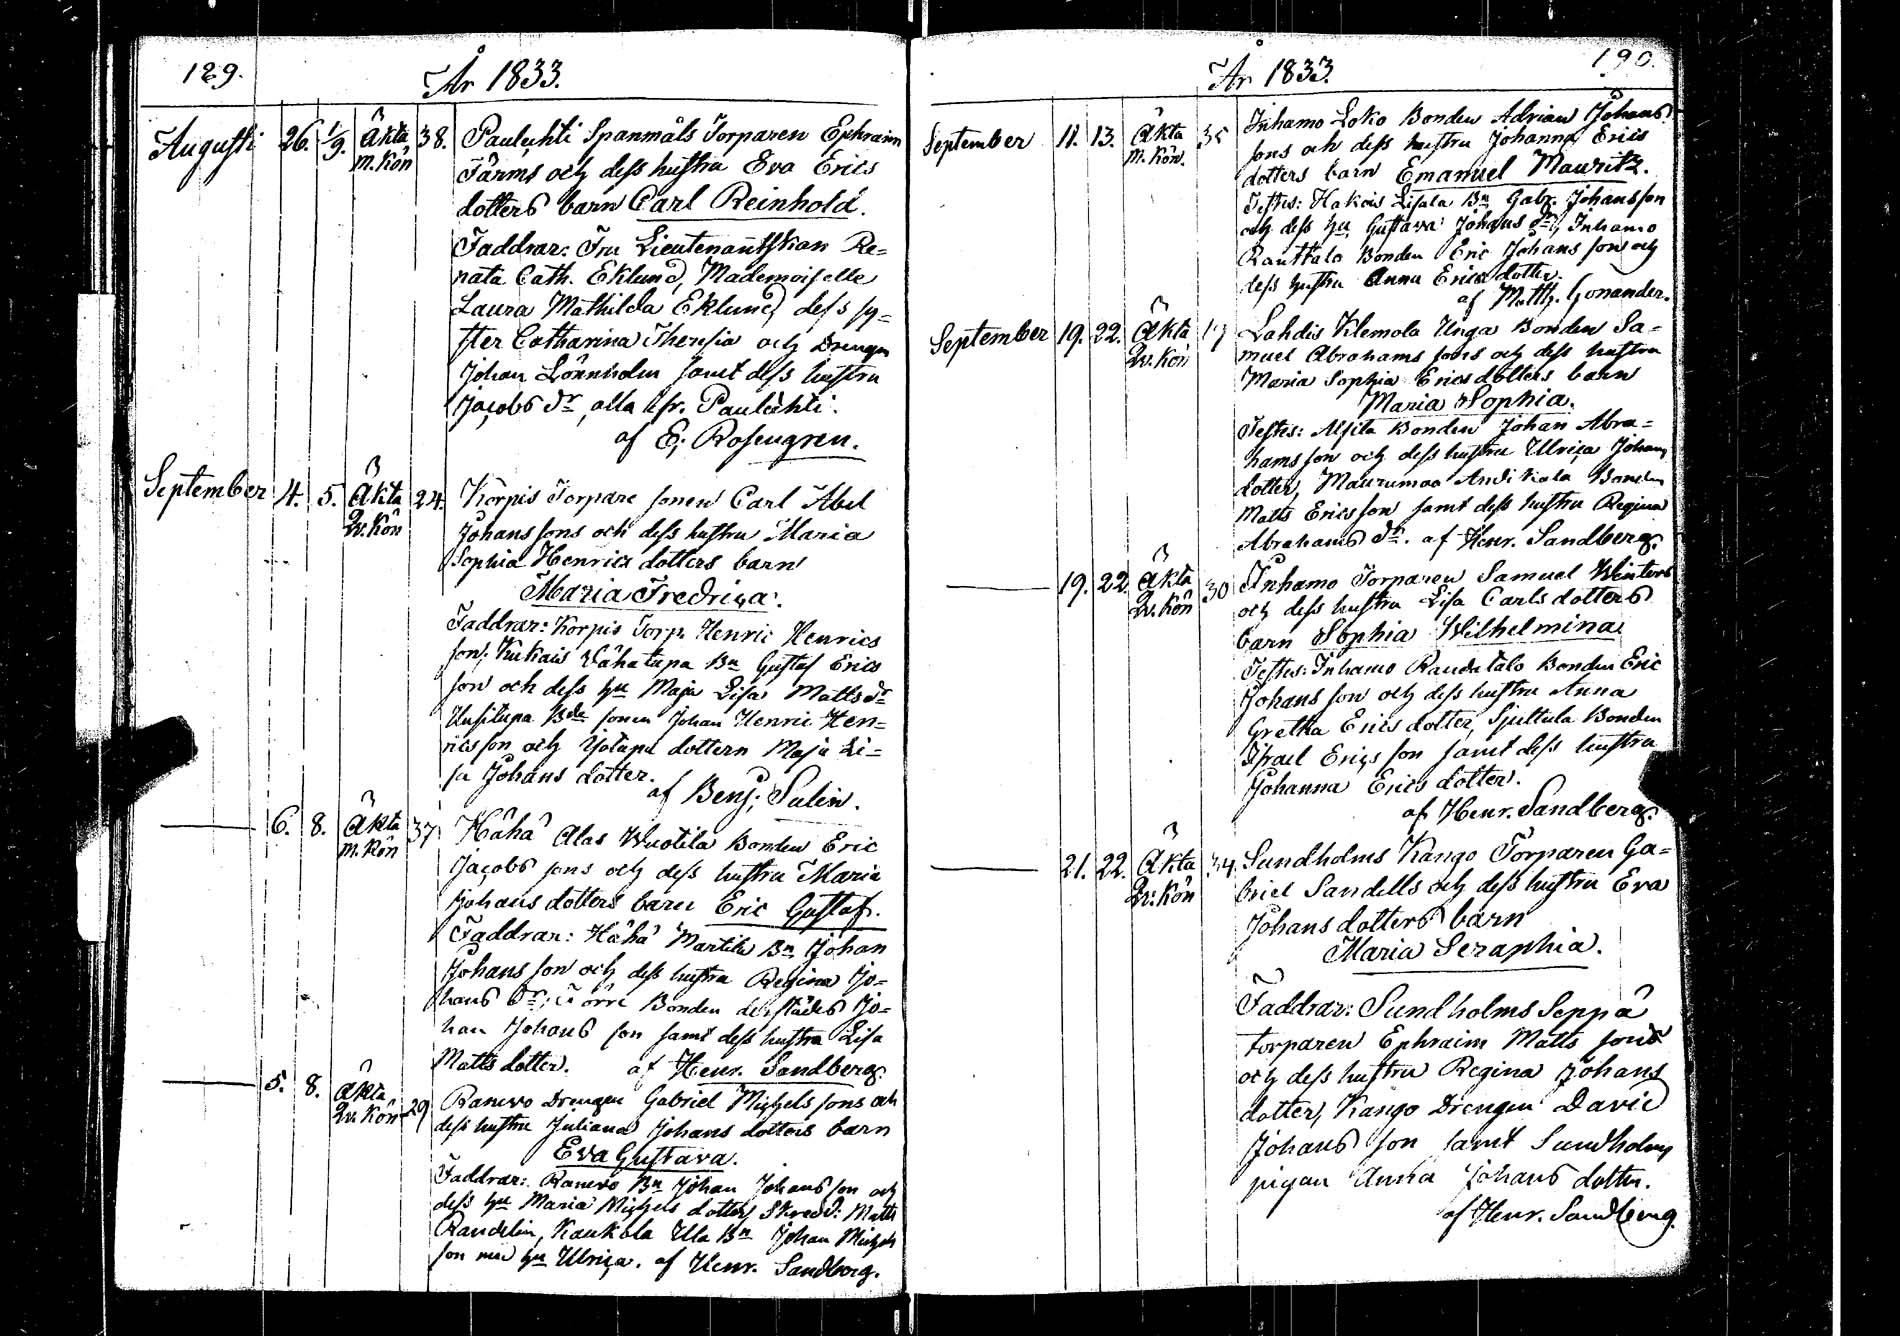 129.
År 1833.
Augusti 26. 1/9. Äkta m. Kön 38. Pauluhti Spanmåls Torparen Ephraim
Färms och dess hustru Eva Erics
dotters barn Carl Reinhold.
Faddrar: Fru Lieutenantskan Re=
nata Cath. Eklund, Mademoiselle
Laura Mathilda Eklund, dess sy=
ster Catharina Theresia och Drengen
Johan Lönnholm samt dess hustru
Jacobs dr, alla ifr.
af E. Rosengren.
September 4. 5. Äkta Qv. Kön 24. Korpis Torpare sonen Carl Abel
Johans sons och dess hustru Maria
Sophia Henrics dotters barn
Maria Fredrica.
Faddrar: Korpis Torp. Henric Henrics
son, Kukais Vähatupa Bn Gustaf Erics
son och dess hu Maja Lisa Matts dr
Uusitupa Bde sonen Johan Henric Hen=
rics son och Isotupa dottern Maja Li=
sa Johans dotter.
af Benj. Salin.
6. 8. Äkta m. Kön 37 Hähä Alas Wuotila Bonden Eric
Jacobs sons och dess hustru Maria
Johans dotters barn Eric Gustaf.
Faddrar: Hähä Martila Bn Johan
Johans son och dess hustru Regina Jo=
hans dr, Torri Bonden derstädes Jo=
han Johans son samt dess hustru Lisa
Matts dotter. af Henr. Sandberg.
5. 8. Äkta Qv. Kön 29 Ranwo Drengen Gabriel Michels sons och
dess hustru Juliana Johans dotters barn
Eva Gustava.
Faddrar: Ranwo Bn Johan Johans son och
dess hu Maria Michels dotter, Skredd: Matts
Randelin, Kaukola Ula Bn Johan Michels
son med hu Ulrica. af Henr. Sandberg.
190.
År 1833.
September 11. 13. Äkta m. Kön. 35 Inhamo Loko Bonden Adrian Johans
sons och dess hustru Johanna Erics
dotters barn Emanuel Mauritz.
Testes: Lisala Bn Gabr. Johansson
och dess hu Gustava Johans dr, Inhamo
Rauttalo Bonden Eric Johans son och
dess hustru Anna Erics dotter.
af Matth. Gonander.
September 19. 22. Äkta Qv. Kön Lahdis Klemola Unga Bonden Sa=
muel Abrahams sons och dess hustru
Maria Sophia Erics dotters barn
Maria Sophia.
Testes: Alsila Bonden Johan Abra=
hams son och dess hustru Ulrica Johans
dotter, Maurumaa Andikala Bonden
Matts Erics son samt dess hustru Regina
Abrahams dr. af Henr. Sandberg.
19. 22. Äkta Qv. Kön 30 Inhamo Torparen Samuel Winters
och dess hustru Lisa Carls dotters
barn Sophia Wilhelmina.
Testes: Inhamo Raudatalo Bonden Eric
Johans son och dess hustru Anna
Gretha Erics dotter, Sjuttula Bonden
Israel Erics son samt dess hustru
Johanna Erics dotter.
af Henr. Sandberg.
21. 22. Äkta Qv. Kön 34. Sundholms Kango Torparen Ga=
briel Sandells och dess hustru Eva
Johans dotters barn
Maria Seraphia.
Faddrar: Sundholms Seppä
torparen Ephraim Matts son
och dess hustru Regina Johans
dotter, Kango Drengen David
Johans son samt Sundholms
pigan Anna Johans dotter.
af Henr. Sandberg.